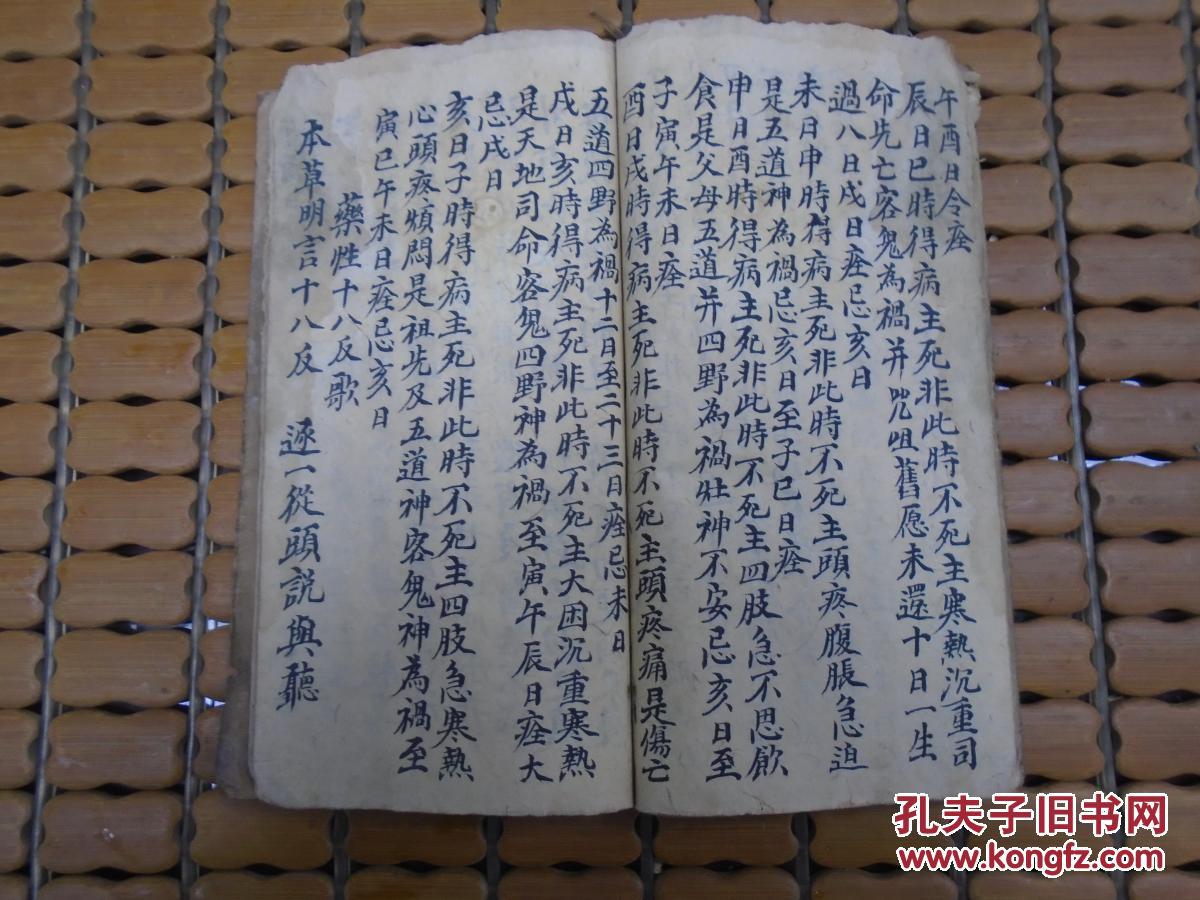 午酉日令痊
辰日巳時得病主死非此時不死主寒熱沉重司
命先亡客鬼為禍并咒咀舊愿未還十日一生
過八日戌日痊忌亥日
未日申時得病主死非此時不死主頭疼腹脹急迫
是五道神為禍忌亥日至子巳日痊
申日酉時得病主死非此時不死主四肢急不思飲
食是父母五道并四野為禍壯神不安忌亥日至
子寅午未日痊
酉日戌時得病主死非此時不死主頭疼痛是傷亡
五道四野為禍十二日至二十三日痊忌未日
戌日亥時得病主死非此時不死主大困沉重寒熱
是天地司命客鬼四野神為禍至寅午辰日痊大
忌戌日
亥日子時得病主死非此時不死主四肢急寒熱
心頭疼煩悶是祖先及五道神客鬼神為禍至
寅巳午未日痊忌亥日
藥性十八反歌
本草明言十八反 逐一從頭說與聽
孔夫子旧书网
www.kongfz.com